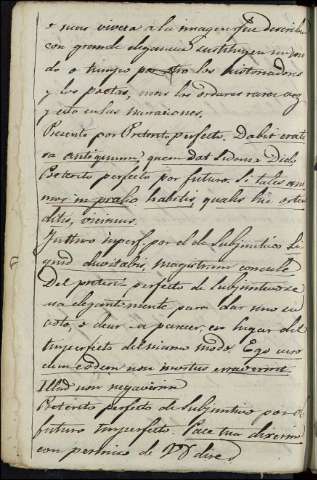 o mas vivera a la imagen que describe
con grande elegancia substituyen un mo
do o tiempo por otro los historiadores
y los poetas, mas los oradores rara vez
y esto en las narraciones.
Presente por Preterito perfecto. Dabit crate
ra antiquum, quem dat Sidonia Dido
Preterito perfecto por futuro. Si tales ani
mos in prælio habitis, quales his osten
ditis, vicimus.
Futuro imperf. por el de Subjuntivo. Si
quid dubitabis, magistrum consule
Del preterito perfecto de subjuntivo se
usa elegantemente para dar uno su
voto, o decir su parecer, en lugar del
Imperfecto del mismo modo. Ego vero
cum eodem non invitus erraverim
Illud non negaverim
Preterito perfecto de Subjuntivo por
futuro Imperfecto. Pace tua dixerim
con permiso de Vd dire